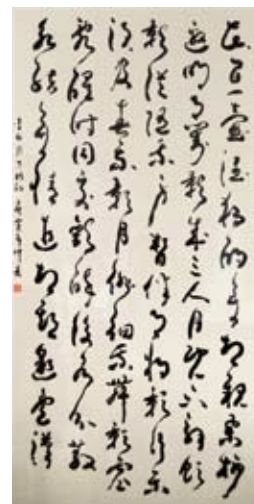 花間一壺酒獨酌無相親舉杯
邀明月對影成三人月既不解飲
影徒隨我身暫伴月將影行樂
須及春我歌月徘徊我舞影零
亂醒時同交歡醉後各分散
永結無情遊相期邈雲漢